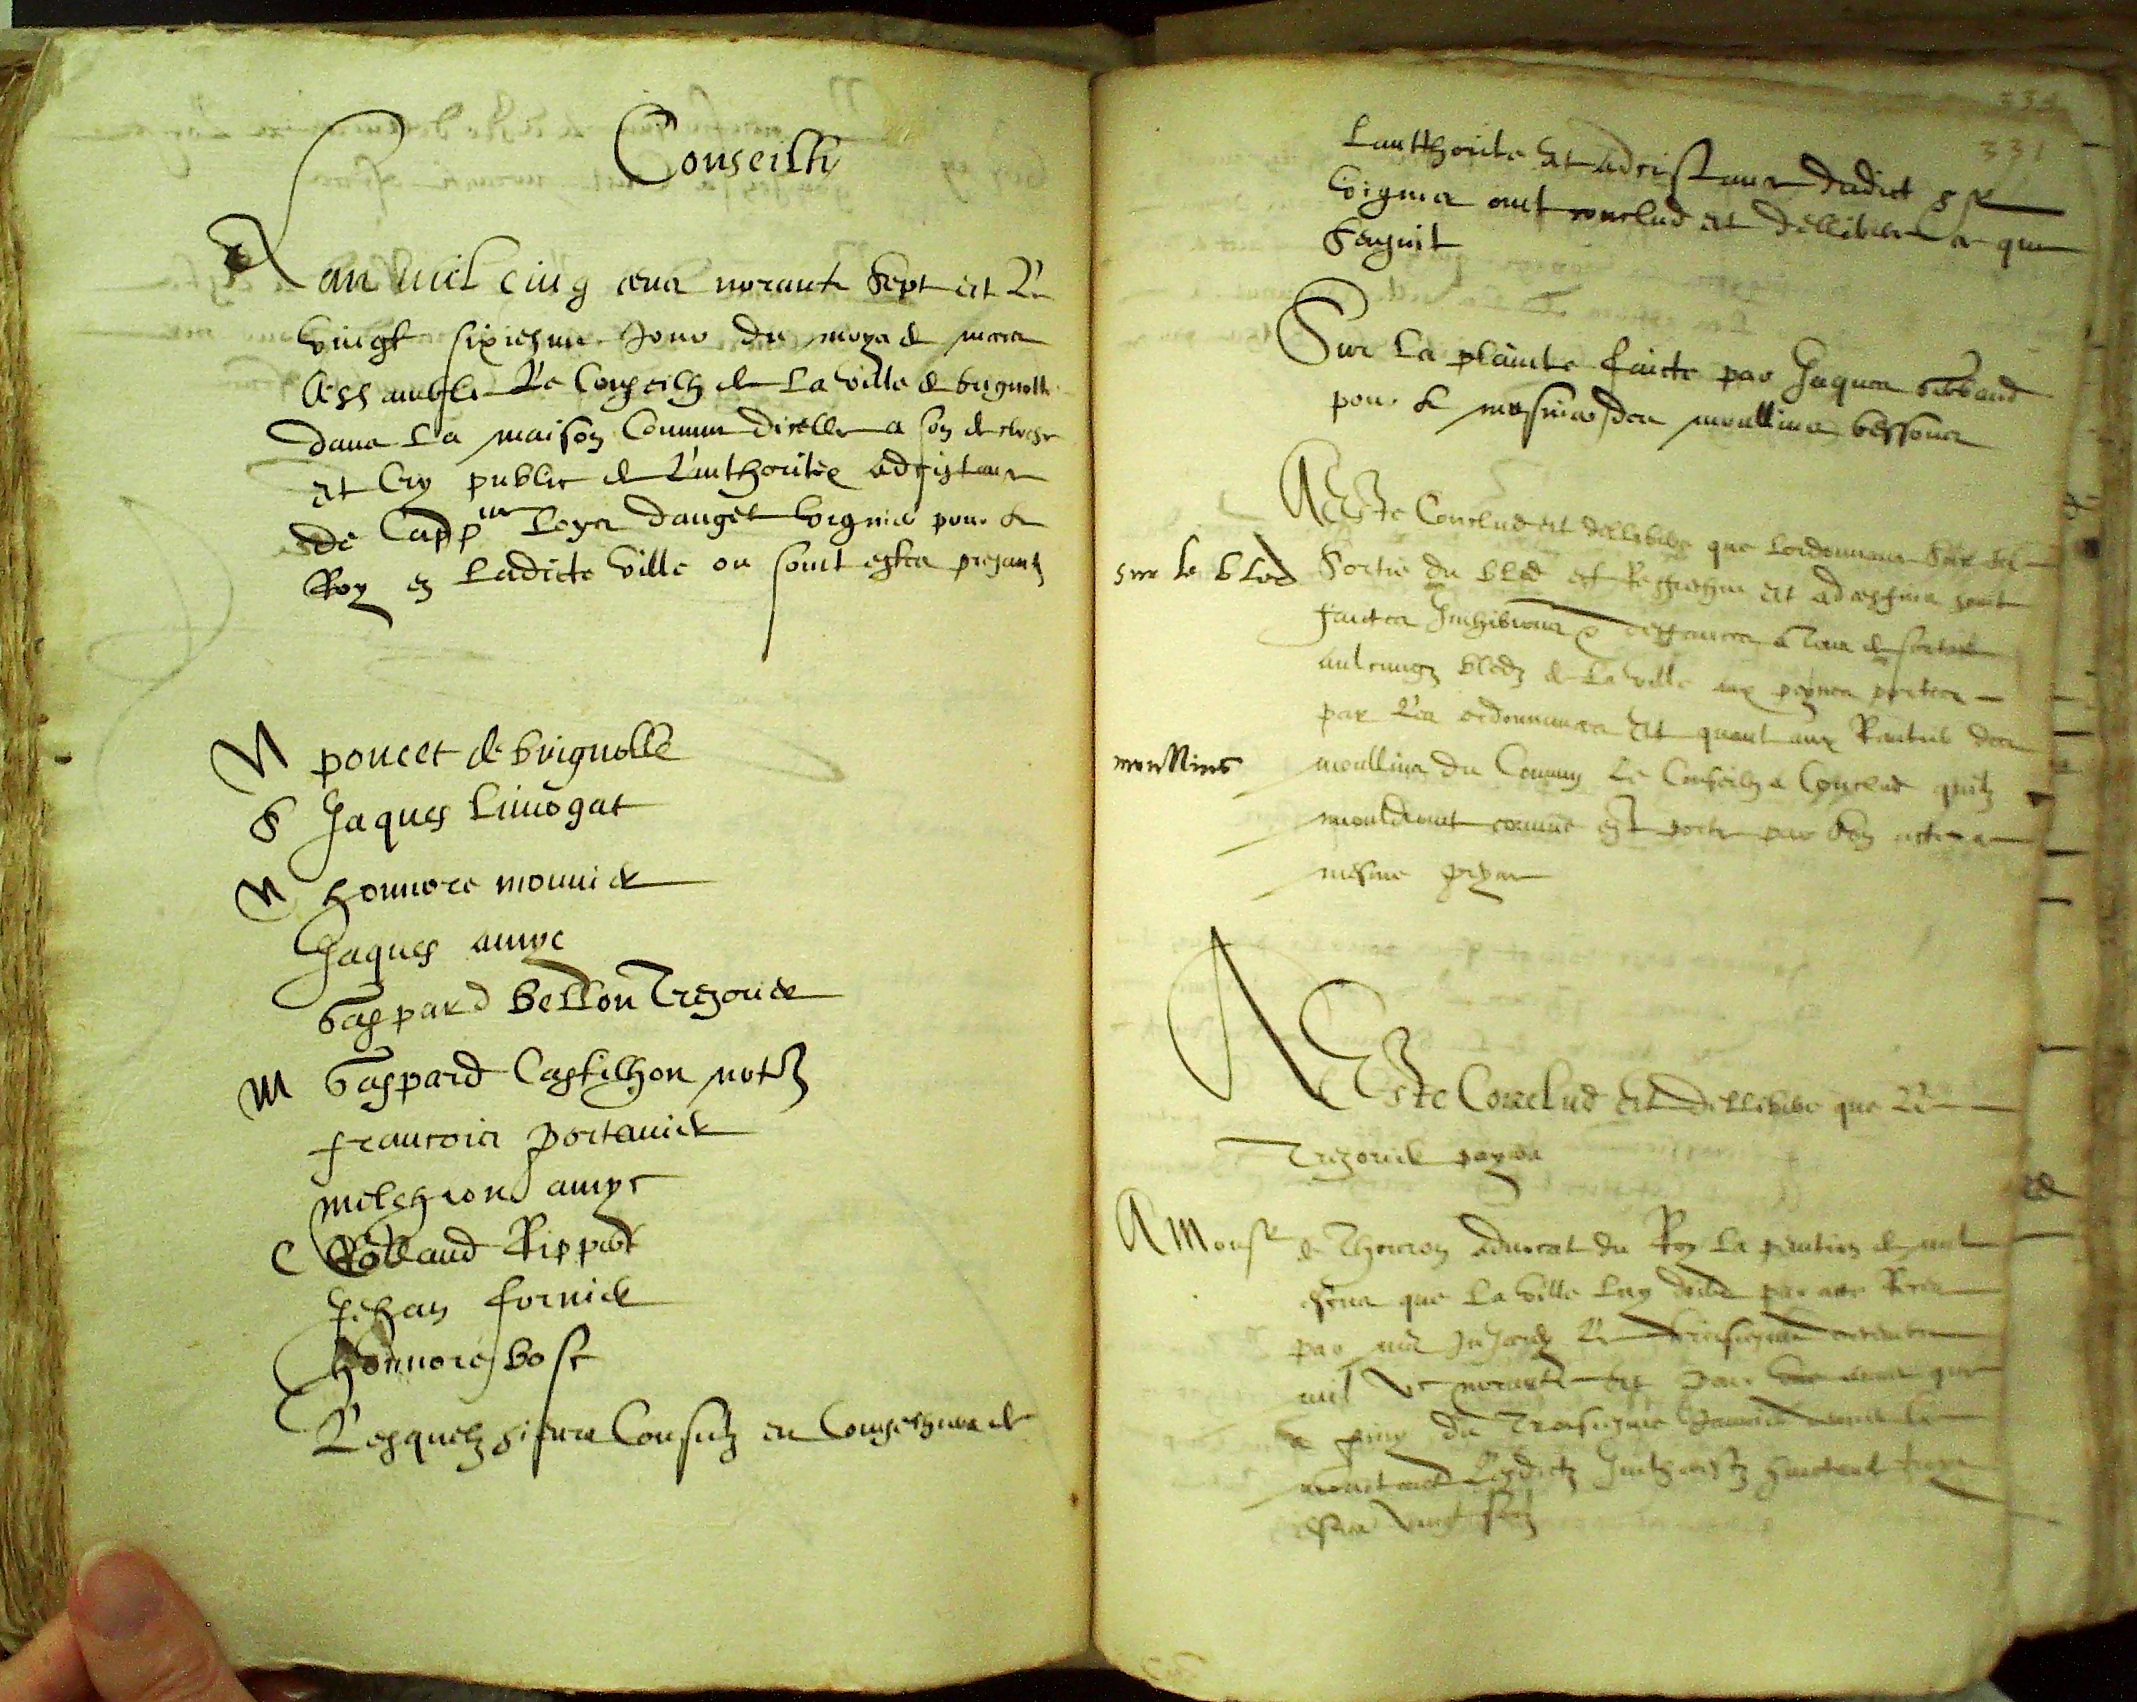 Conseilh
L'an mil cinq cens norante sept et le
vingt sixiesme jour du moys de mars
Assemble le Conseilh de la ville de brignolle
dans la maison Commune dicelle a son de cloche
et cry public de l'authorite adsistance
de Cappne Loys dauget viguier pour le
Roy en ladicte ville ou sont estes presantz
M poncet de brignolle
S Jaques Limogat
M honnore monnier
Jaques amyc
Gaspard bellon Trezorier
M Gaspard Castilhon notere
francois portanier
melchion amyc
C Rolland Rippert
Jehan fornier
honnore bosc
Lesquelz sieurs Consulz et Conselhers de
331
Lauthorite et adcistance dudict sr
viguier ont conclud et dellibere ce que
sensuit
Sur la plainte faicte par Jaques
pour le des moullins bessons
A Este Conclud et dellibere que lordonnance sur la
sur le bled
sortie du bled est Reffreschie et adcesfins sont
faictes Inhibitions & deffances a tous de sortir
aulcungz bledz de la ville aux peynes portees
par les ordonnances et quant aux Rantiers des
moullins
moullins du Commun le Conseilh a Conclud quilz
mouldront comme est porte par son acte a
mesme
A Este Conclud et dellibere que le
Trezorier payera
A Monsr de Thoron advocat du Roy la pention de
escus que la ville luy doibt par acte Receu
par me le
mil vc norante pour que
a du Troisiesme Janvier
montant lesdictz
escus vingt solz